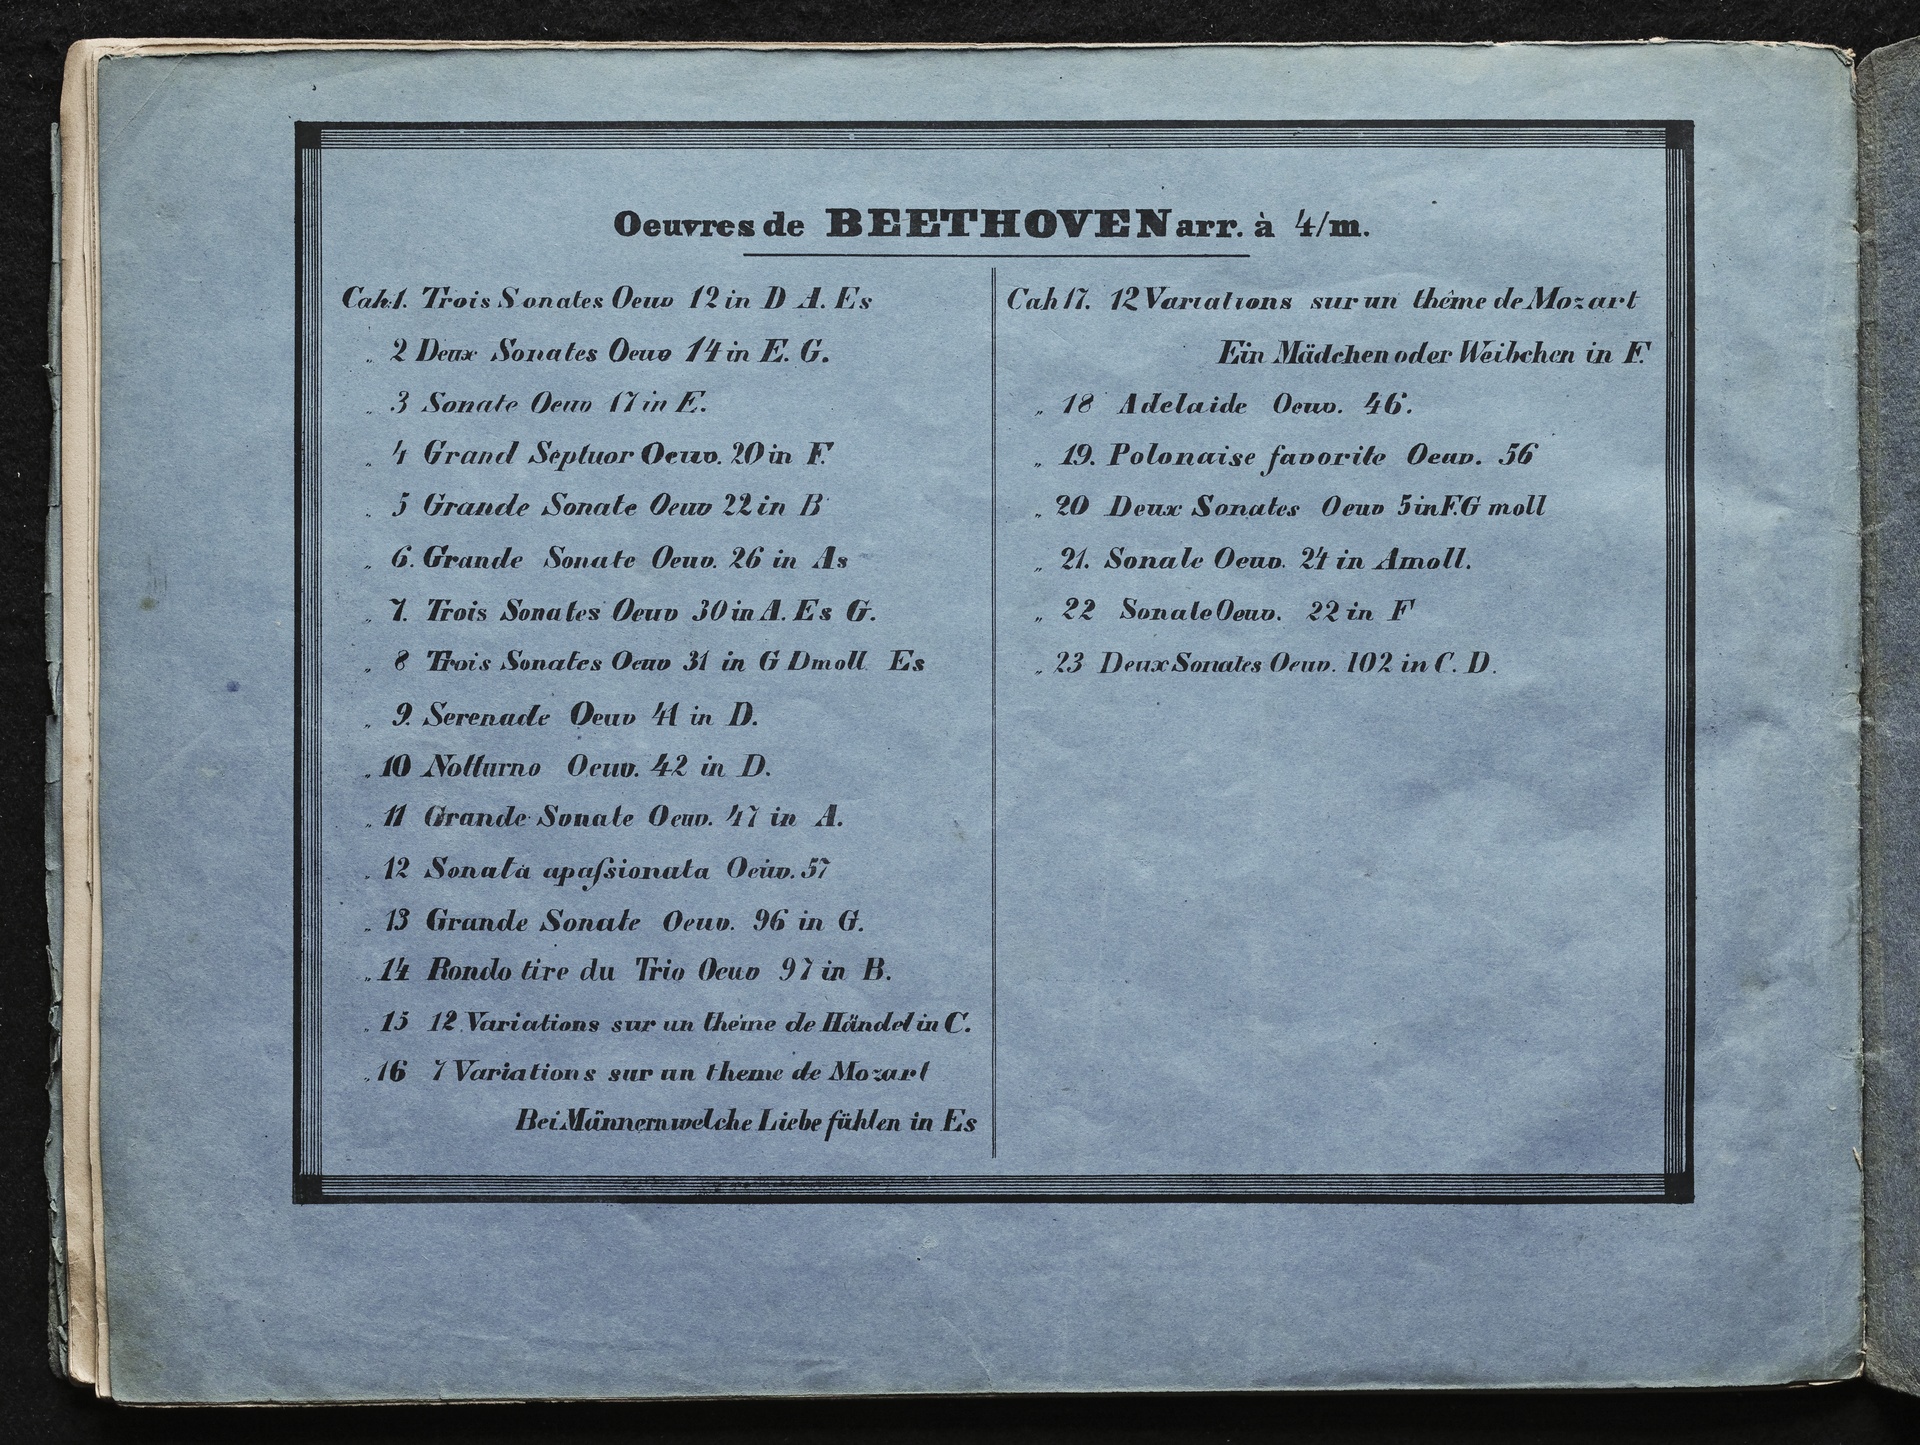 Oeuvres de BEETHOVEN arr. à 4/m.
Cah:1. Trois Sonates Oeuv 12 in D A. Es
„ 2 Deux Sonates Oeuv 14 in E. G.
„ 3 Sonate Oeuv 17 in E.
„ 4 Grand Septuor Oeuv. 20 in F.
„ 5 Grande Sonate Oeuv 22 in B
„ 6. Grande Sonate Oeuv. 26 in As
„ 7. Trois Sonates Oeuv 30 in A. Es G.
„ 8 Trois Sonates Oeuv 31 in G Dmoll Es
„ 9. Serenade Oeuv 41 in D.
„ 10 Notturno Oeuv. 42 in D.
„ 11 Grande Sonate Oeuv. 47 in A.
„ 12 Sonata apaſsionata Oeuv. 57
„ 13 Grande Sonate Oeuv. 96 in G.
„ 14 Rondo tire du Trio Oeuv 97 in B.
„ 15 12 Variations sur un théme de Händel in C.
„ 16 7 Variations sur un theme de Mozart
Bei Männern welche Liebe fühlen in Es
Cah 17. 12 Variations sur un thême de Mozart
Ein Mädchen oder Weibchen in F.
„ 18 Adelaide Oeuv. 46.
„ 19. Polonaise favorite Oeuv. 56
„ 20 Deux Sonates Oeuv 5 in F. G moll
„ 21. Sonate Oeuv. 24 in Amoll.
„ 22 Sonate Oeuv. 22 in F
„ 23 Deux Sonates Oeuv. 102 in C. D.